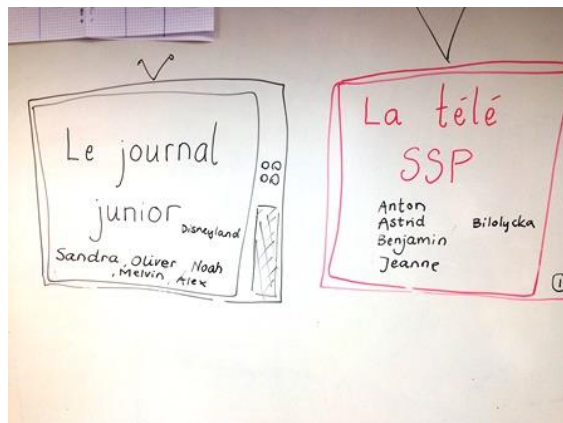 Le journal
junior
Disneyland
Sandra, Oliver Noah
, Melvin, Alex
La télé
SSP
Anton
Astrid Bilolycka
Benjamin
Jeanne
1